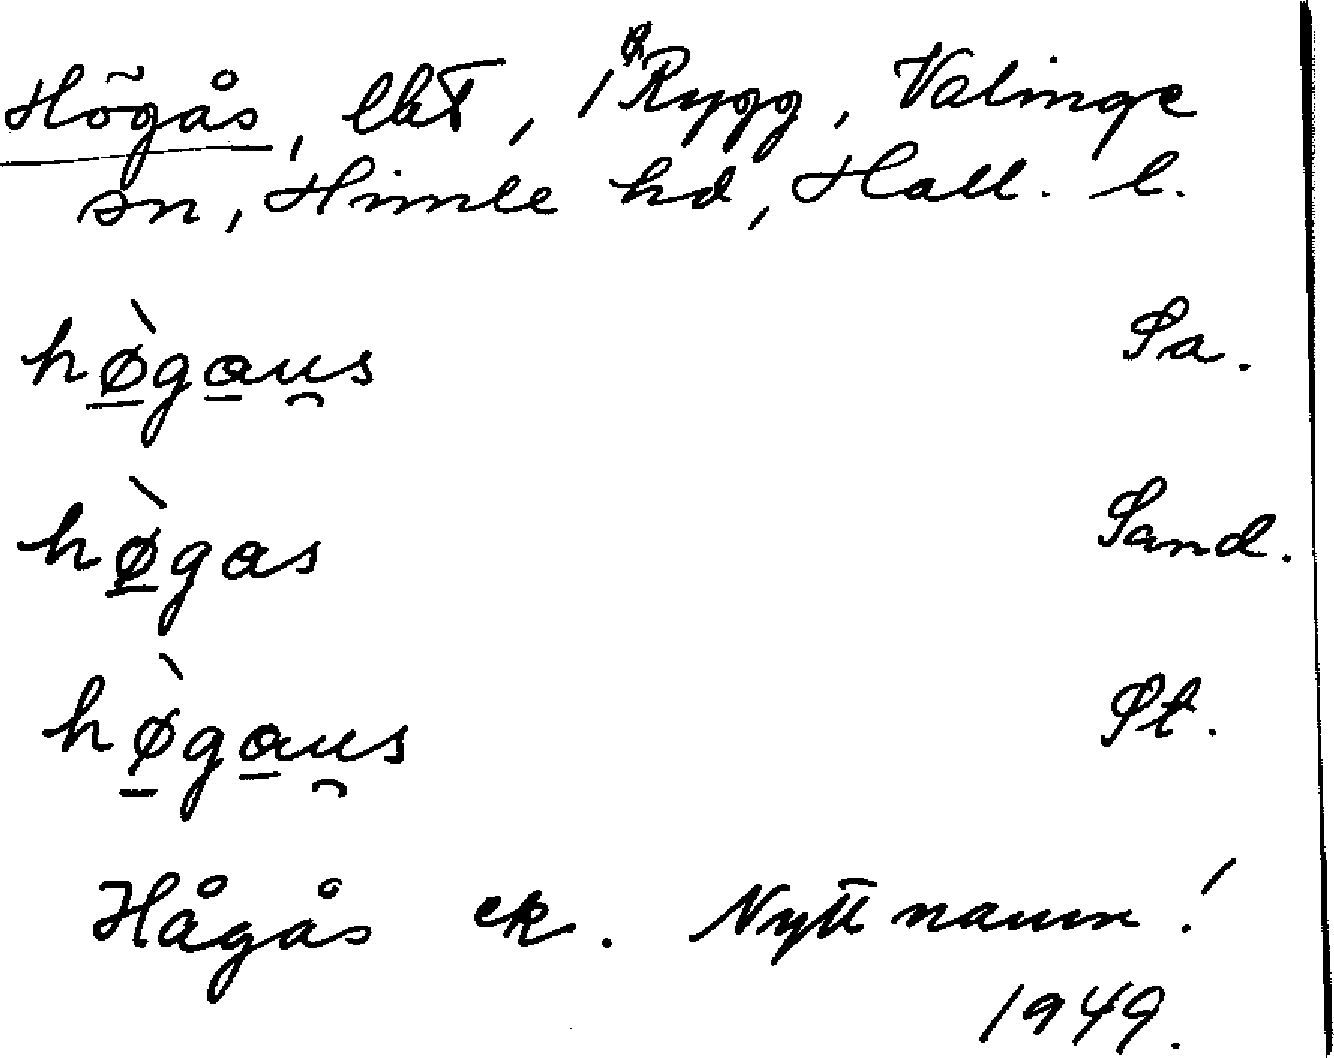 Högås, lht, 1 Rygg, Valinge
sn, Himle hd, Hall. l.
hø̱̀ga̱u̯s Sa.
hø̱̀gas Sand.
hø̱̀ga̱u̯s St.
Hågås ek. Nytt namn!
1949.